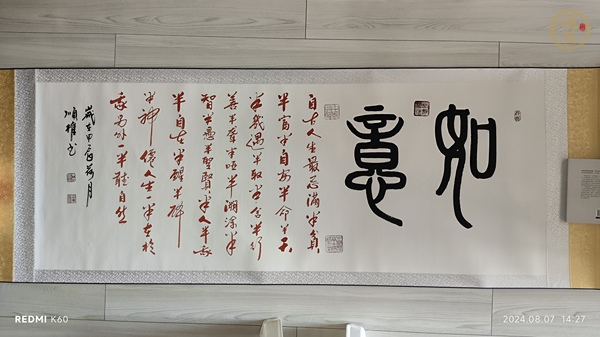 如意
自古人生最忌满半貧
半富半自安半命半天
半機遇半取半舍半行
善半聋半哑半糊涂半
智半愚半聖賢半人半我
半自在半醒半醉
半神僊人生一半在於
我另外一半聽自然
歲在甲辰荷月
书
REDMI K60
2024.08.07 14:27